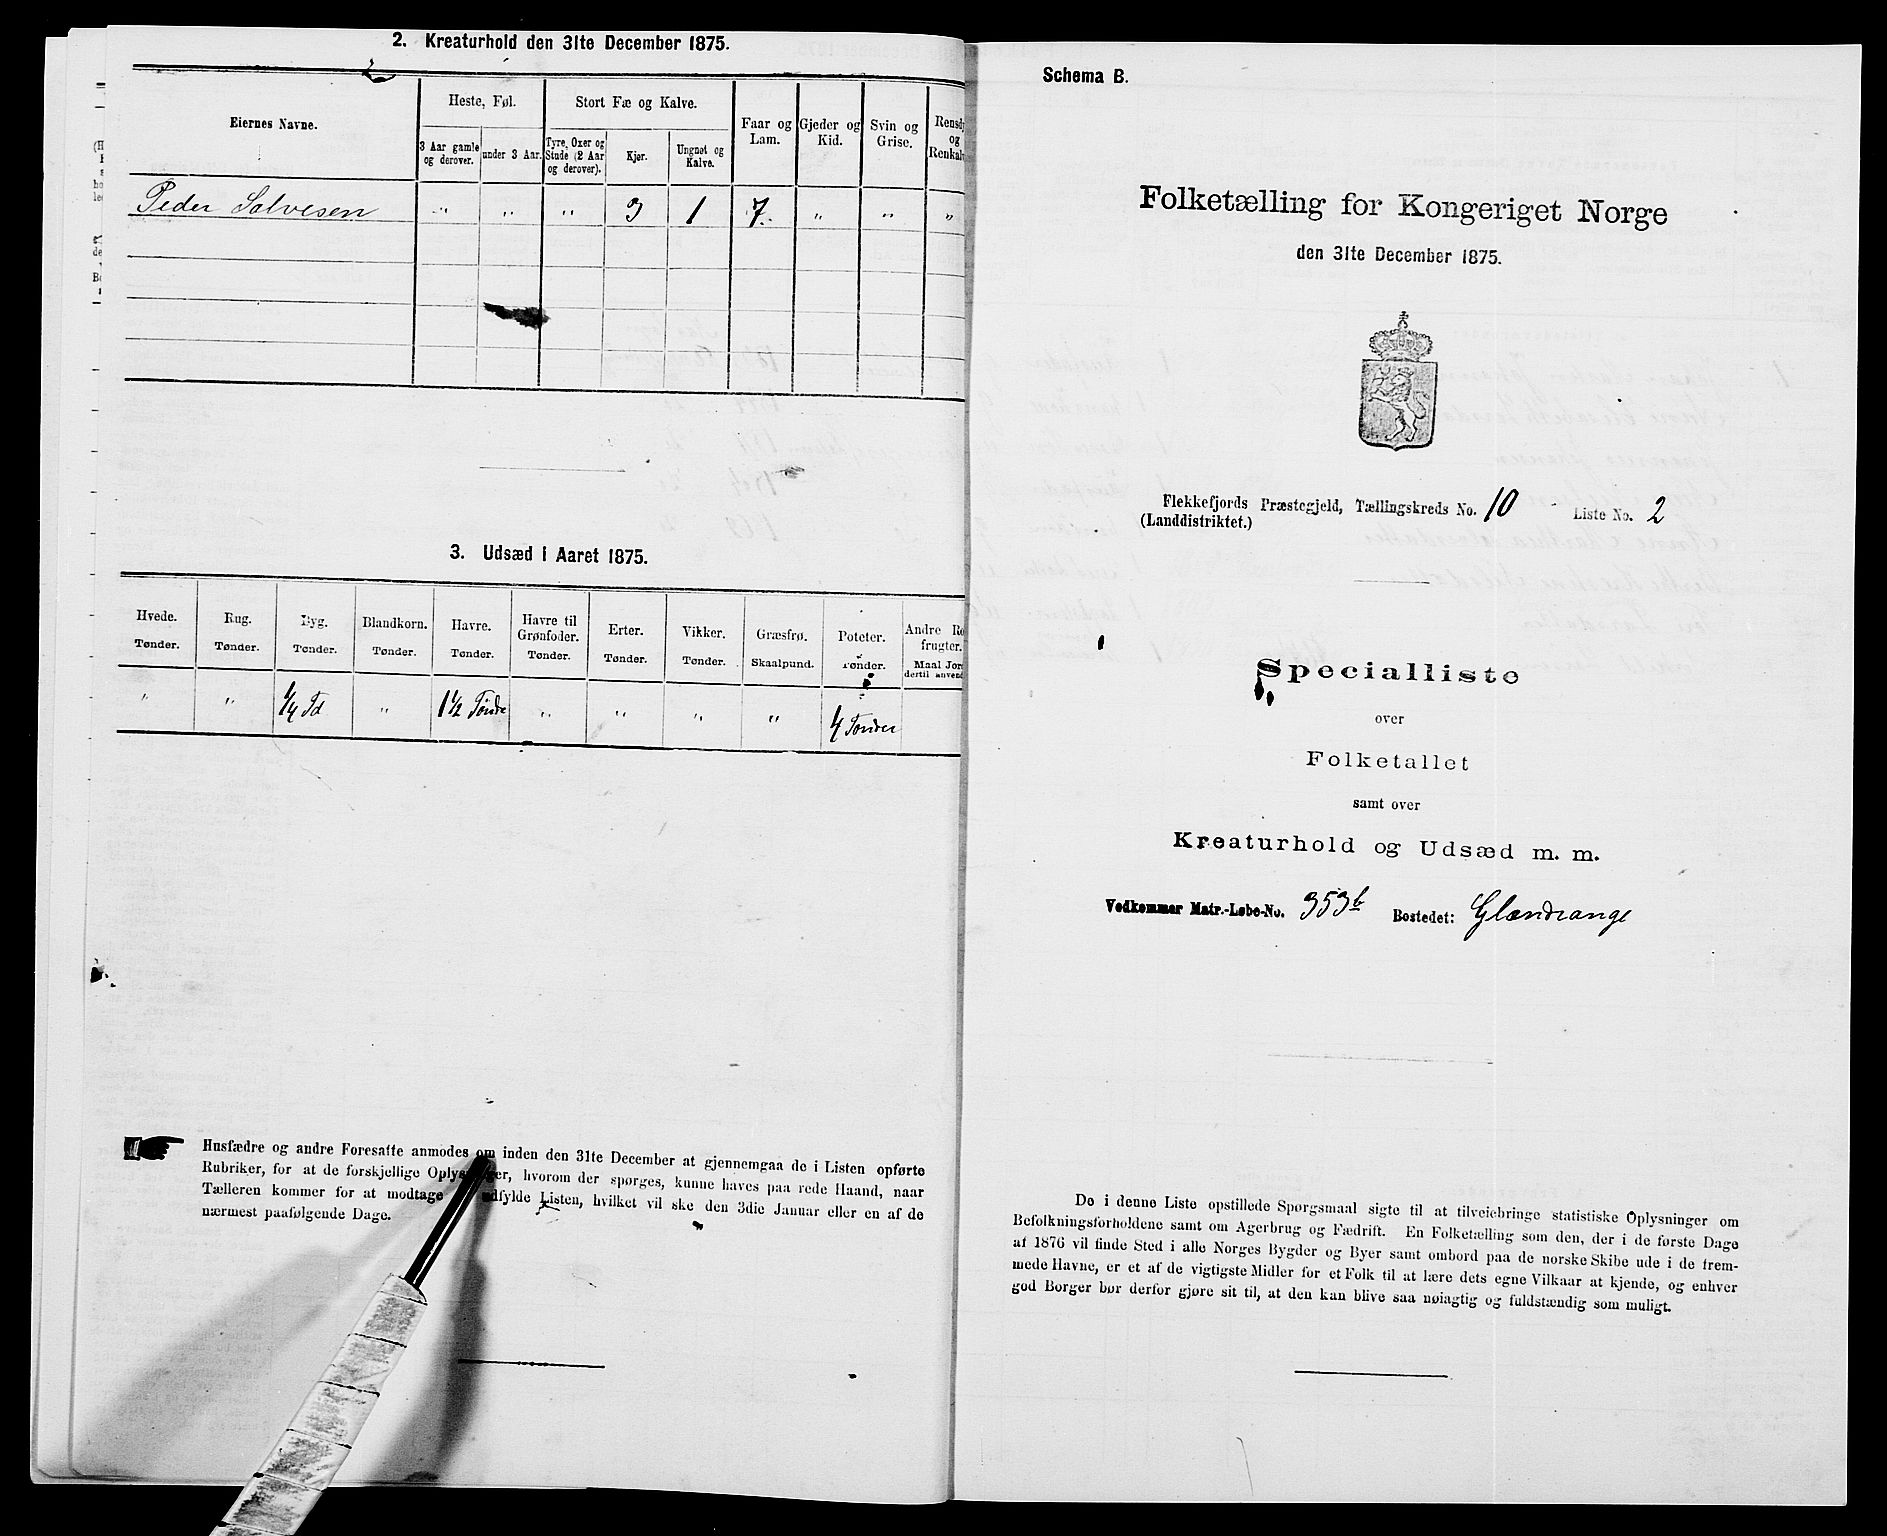 2. Kreaturhold den 31te December 1875.
Eiernes Navne.
Heste, Føl.
3 Aar gamle og derover.
under 3 Aar.
Stort Fæ og Kalve.
Tyre, Oxer og Stude (2 Aar og derover).
Kjør.
Ungnøt og Kalve.
Faar og Lam.
Gjeder og Kid.
Svin og Grise.
Rensdy
og
Renkalv
Peder Salvesen " " " 3 1 7. " " "
3. Udsæd i Aaret 1875.
Hvede. Tønder.
Rug. Tønder.
Byg. Tønder.
Blandkorn. Tønder.
Havre. Tønder.
Havre til Grønfoder. Tønder.
Erter. Tønder.
Vikker. Tønder.
Græsfrø. Skaalpund.
Poteter. Tønder.
Andre Ro
frugter.
Maal Jor
dertil anvend
" " 1/4 Td " 1 1/2 Tönde " " " " 4 Tönder
Husfædre og andre Foresatte anmodes om inden den 31te December at gjennemgaa de i Listen opførte
Rubriker, for at de forskjellige Oplysninger, hvorom der spørges, kunne haves paa rede Haand, naar
Tælleren kommer for at modtage udfylde Listen, hvilket vil ske den 3die Januar eller en af de
nærmest paafølgende Dage.
Schema B.
Folketælling for Kongeriget Norge
den 31te December 1875.
Flekkefjords Præstegjeld, Tællingskreds No. 10 Liste No. 2
(Landdistriktet.)
Specialliste
over
Folketallet
samt over
Kreaturhold og Udsæd m. m.
Vedkommer Matr.-Løbe-No. 353b Bostedet: Glændrange
De i denne Liste opstillede Spørgsmaal sigte til at tilveiebringe statistiske Oplysninger om
Befolkningsforholdene samt om Agerbrug og Fædrift. En Folketælling som den, der i de første Dage
af 1876 vil finde Sted i alle Norges Bygder og Byer samt ombord paa de norske Skibe ude i de frem-
mede Havne, er et af de vigtigste Midler for et Folk til at lære dets egne Vilkaar at kjende, og enhver
god Borger bør derfor gjøre sit til, at den kan blive saa nøiagtig og fuldstændig som muligt.